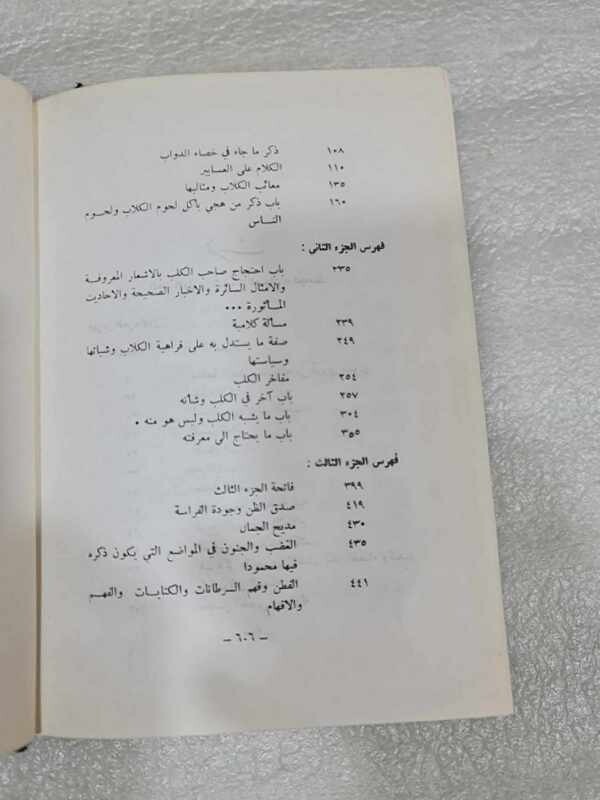 ١٠٨ ذكر ما جاء في خصاء الدواب
١١٠ الكلام على العصافير
١٣٥ معائب الكلاب ومثالبها
١٦٠ باب ذكر من هجي بأكل لحوم الكلاب ولحوم
النـاس
فهرس الجزء الثاني :
٢٣٥ باب احتجاج صاحب الكلب بالاشعار المعروفة
والامثال السائرة والاخبار الصحيحة والاحاديث
المـأثورة ...
٢٣٩ مسألة كلامية
٢٤٩ صفة ما يستدل به على فراهية الكلاب وشياتها
وسياستها
٢٥٤ مفاخر الكلب
٢٥٧ باب آخر في الكلب وشأنه
٣٠٤ باب ما يشبه الكلب وليس هو منه .
٣٥٥ باب ما يحتاج الى معرفته
فهرس الجزء الثالث :
٣٩٩ فاتحة الجزء الثالث
٤١٩ صدق الظن وجودة الفراسة
٤٣٠ مديح الجمال
٤٣٥ الغضب والجنون في المواضع التي يكون ذكره
فيها محمودا
٤٤١ الفطن وفهم الـرطانات والكنايـات والفهـم
والافهام
– ٦٠٦ –